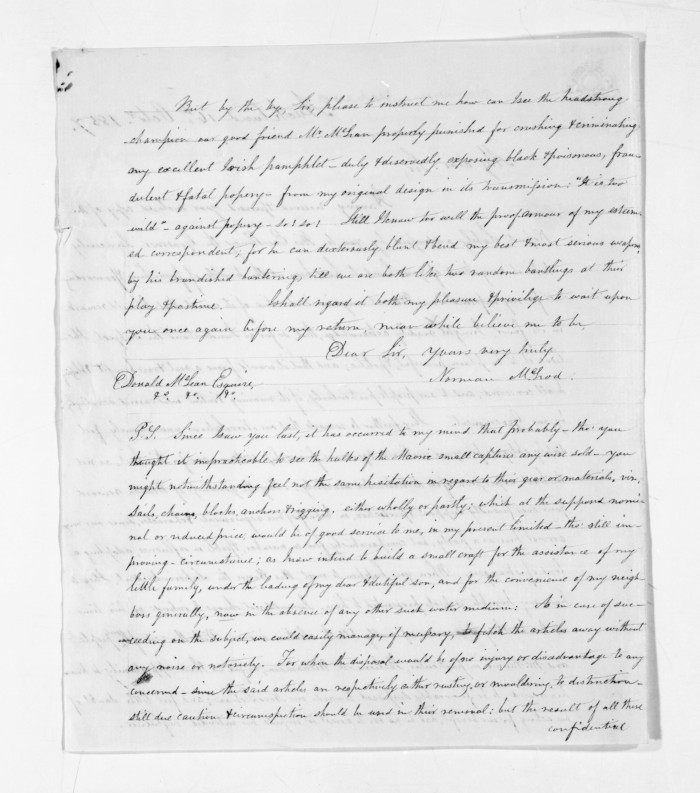 But by the by, Sir, please to instruct me how can I see the headstrong
champion our good friend Mr. McLean properly punished for crushing & criminating
my excellent Irish pamphlet – duly & deservedly exposing black & poisonous, frau-
dulent & fatal popery – from my original design in its transmission: "It is too
mild" – against popery – so! so! Still I know too well the proof armour of my esteem-
ed correspondent; for he can dexterously blunt & bend my best & most serious weapons
by his brandished bantering, till we are both like two random bantlings at their
play & pastime. I shall regard it both my pleasure & privilege to wait upon
you once again before my return, mean while believe me to be
Dear Sir, yours very truly
Norman McLeod.
Donald McLean Esquire,
&c. &c. &c.
P.S. Since I saw you last, it has occurred to my mind that probably – tho' you
thought it impracticable to see the hulks of the Maorie small captures any wise sold – you
might notwithstanding feel not the same hesitation in regard to their gear or materials, viz,
Sails, chains, blocks, anchors & rigging, either wholly or partly; which at the supposed nomi-
nal or reduced price, would be of good service to me, in my present limited – tho' still im-
proving – circumstance; as I now intend to build a small craft for the assistance of my
little family, under the leading of my dear & dutiful son, and for the convenience of my neigh-
bors generally, now in the absence of any other such water medium: As in case of suc-
ceeding on the subject, we could easily manage, if necessary, to fetch the articles away without
any noise or notoriety. For when the disposal would be of no injury or disadvantage to any
concerned – since the said articles are respectively either rusting, or mouldering to destruction –
still due caution & circumspection should be used in their removal: but the result of all these
confidential